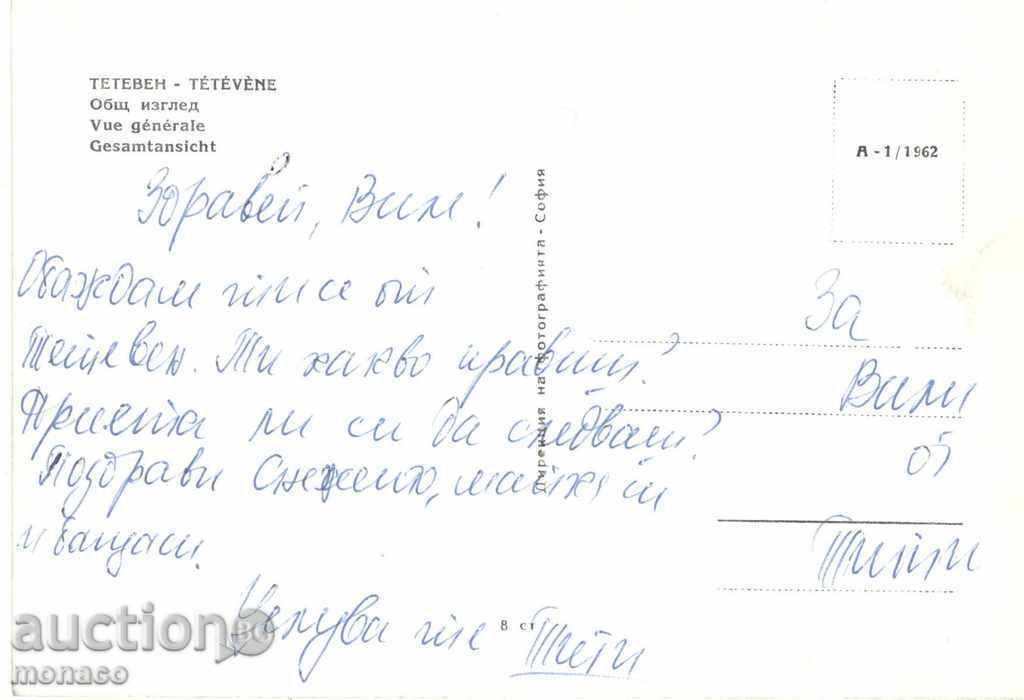 ТЕТЕВЕН - TÉTÉVÈNE
Общ изглед
Vue générale
Gesamtansicht
А - 1/1962
Здравей, Вили!
Обаждам ти се от
Тетевен. Ти какво правиш?
Приета ли си да следваш?
Поздрави Снежето, майка ти
и баща си.
Целува те Тети
Дирекция на фотографията - София
8 ст
За
Вили
от
Тети
auction
monaco